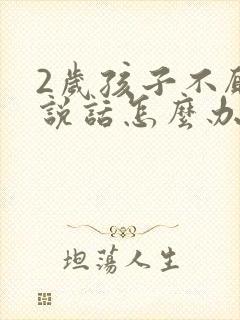 2歲孩子不
說話怎麼办
坦蕩人生